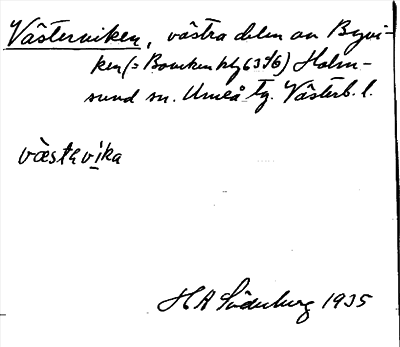 Västerviken, västra delen av Byvi-
ken (= Bovikenkbg 63 d6) Holm-
sund sn. Umeå tg. Västerb. l.
västavika
H A Söderberg 1935